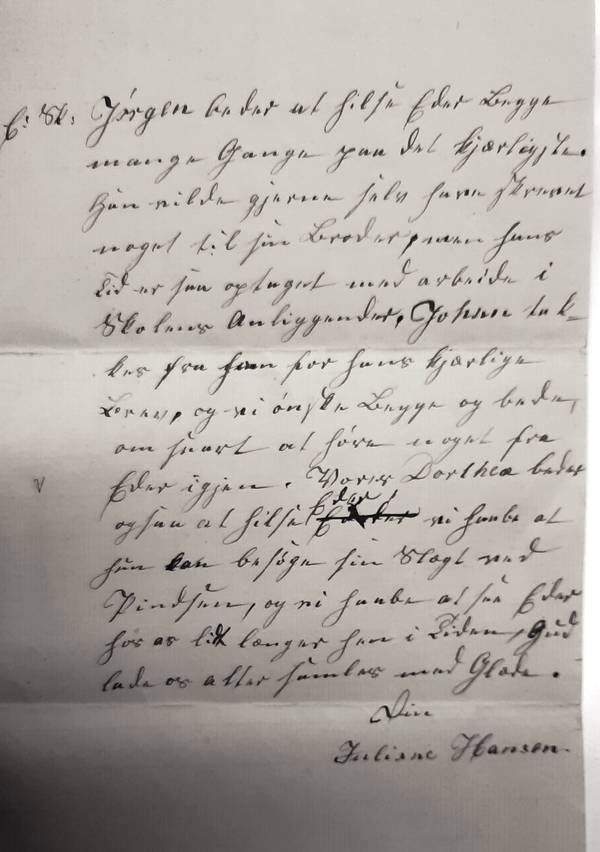 E: Sk: Jørgen beder at hilse Eder Begge
mange Gange paa det kjærligste.
Han vilde gjerne selv have skrevet
noget til sin Broder, men hans
Tid er saa optaget med arbeide i
Skolens Anliggender, Johan tak-
kes fra ham for hans kjærlige
Brev, og vi ønske Begge og bede,
om snart at høre noget fra
Eder igjen. Vores Dorthea beder
ogsaa at hilse Eder vi haabe at
hun kan besøge sin Slægt ved
Pindsen, og vi haabe at see Eder
hos os lidt længer hen i Tiden, Gud
lade os atter samles med Glæde.
Din
Juliane Hansen.